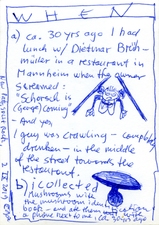 WHEN
a) ca. 30 yrs ago I had
lunch w/ Dietmar Brüh-
müller in a restaurant in
Mannheim when the owner
screamed:
"Schorsch is
(George) coming"
And yes,
1 guy was crawling - completely
drunken - in the middle
of the street towards the
restaurant.
b) i collected
mushrooms wild
the mushroom identification
book - and ate them with
a phone next to me. ca. 30 yrs ago
2 IX 2019